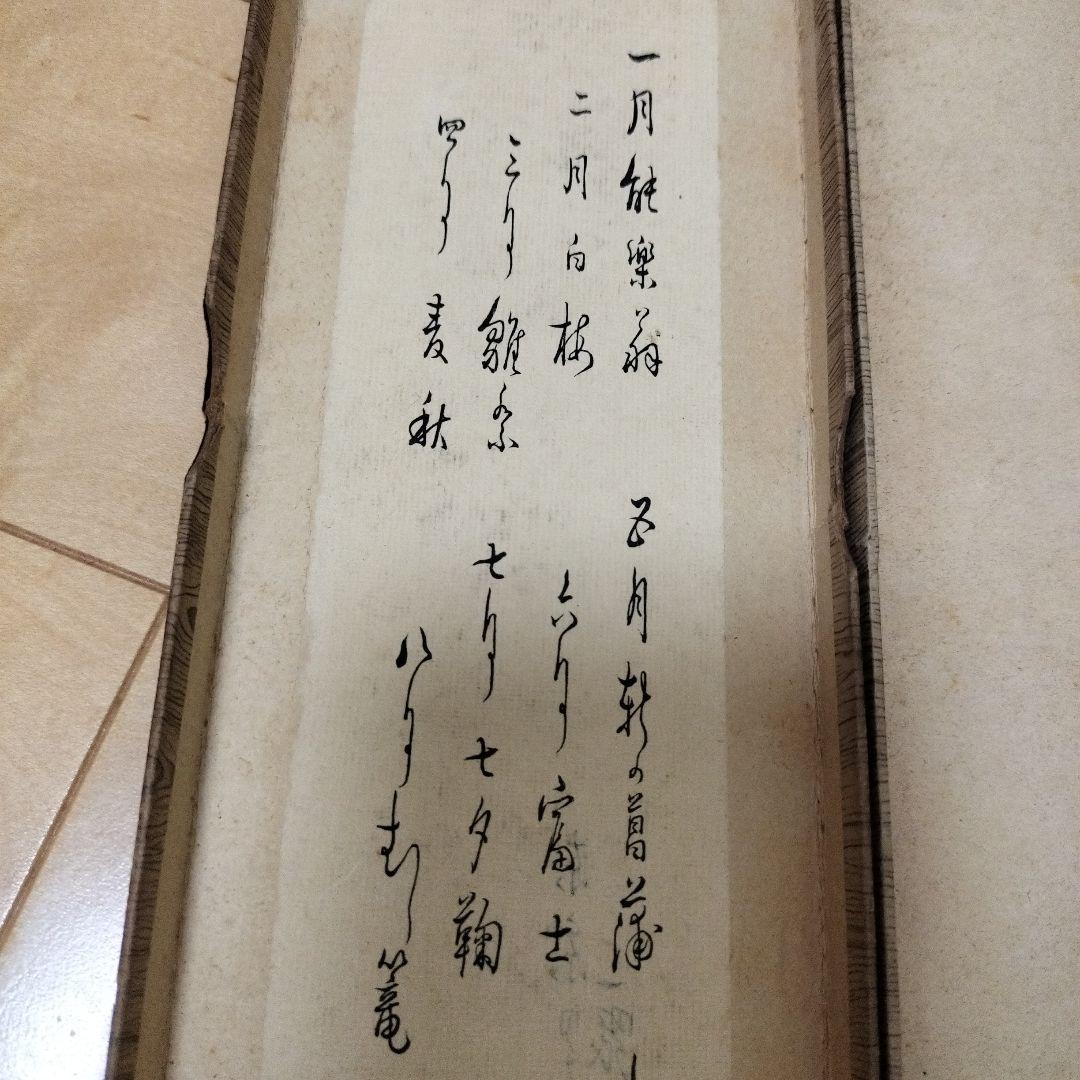 一月能樂翁
二月白梅
三月雛祭
四月麦秋
五月軒の菖蒲
六月富士
七月七夕鞠
八月むし篭